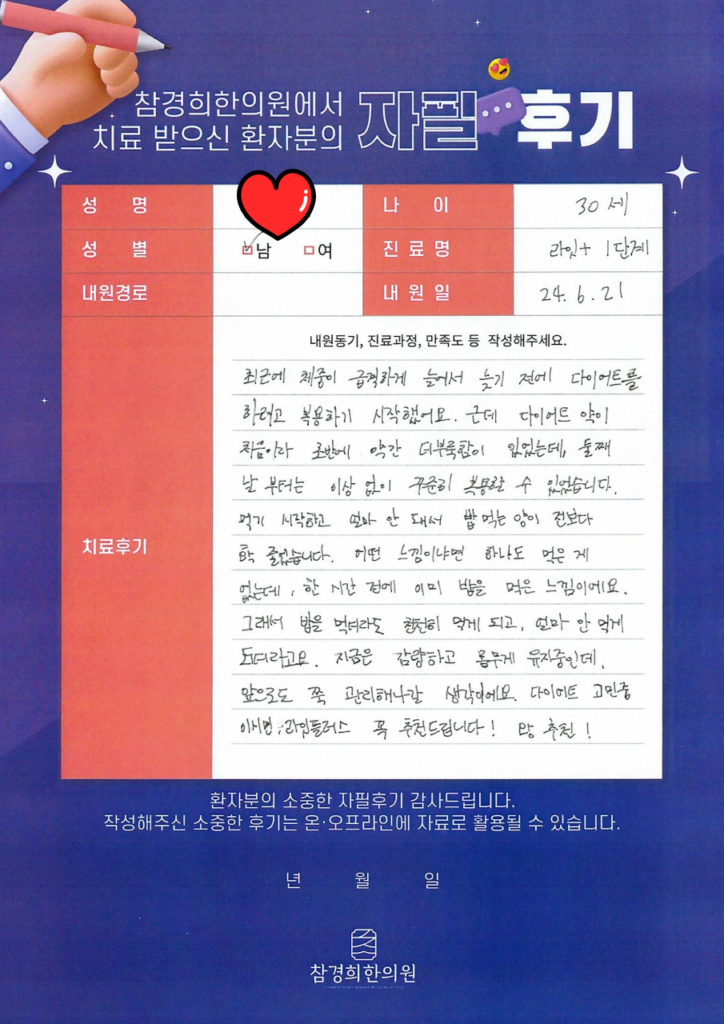 참경희한의원에서
치료 받으신 환자분의 자필 후기
성 명
나 이 30세
성 별 남 여
진료명 라인+ 1단계
내원경로
내원일 24. 6. 21
치료후기
내원동기, 진료과정, 만족도 등 작성해주세요.
최근에 체중이 급격하게 늘어서 늦기 전에 다이어트를
하려고 복용하기 시작했어요. 근데 다이어트 약이
처음이라 초반에 약간 더부룩함이 있었는데, 둘째
날 부터는 이상 없이 꾸준히 복용할 수 있었습니다.
먹기 시작하고 얼마 안 돼서 밥 먹는 양이 전보다
확 줄었습니다. 어떤 느낌이냐면 하나도 먹은 게
없는데, 한 시간 전에 이미 밥을 먹은 느낌이에요.
그래서 밥을 먹더라도 천천히 먹게 되고, 얼마 안 먹게
되더라고요. 지금은 감량하고 몸무게 유지중인데,
앞으로도 쭉 관리해나갈 생각이에요. 다이어트 고민중
이시면, 라인플러스 꼭 추천드립니다! 왕 추천!
환자분의 소중한 자필후기 감사드립니다.
작성해주신 소중한 후기는 온·오프라인에 자료로 활용될 수 있습니다.
년 월 일
참경희한의원